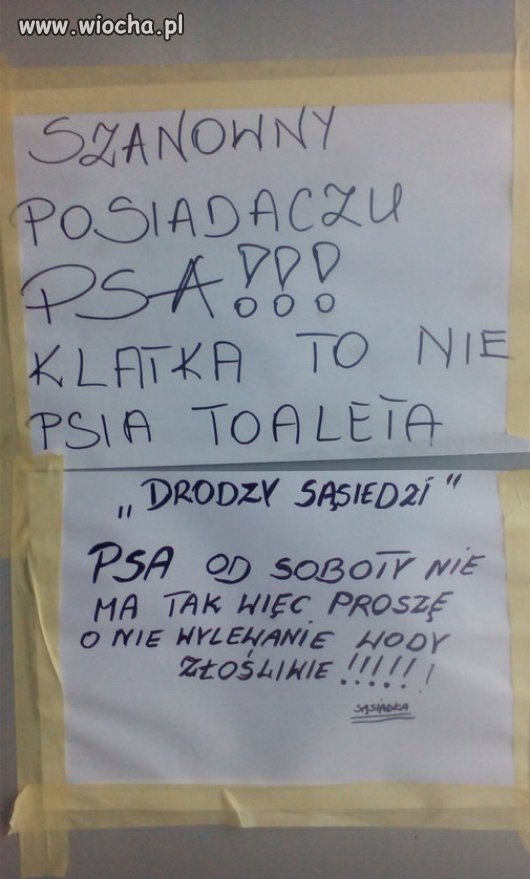 www.wiocha.pl
SZANOWNY
POSIADACZU
PSA!!!
KLATKA TO NIE
PSIA TOALETA
„DRODZY SĄSIEDZI"
PSA OD SOBOTY NIE
MA TAK WIĘC PROSZĘ
O NIE WYLEWANIE WODY
ZŁOŚLIWIE !!!!!!
SĄSIADKA